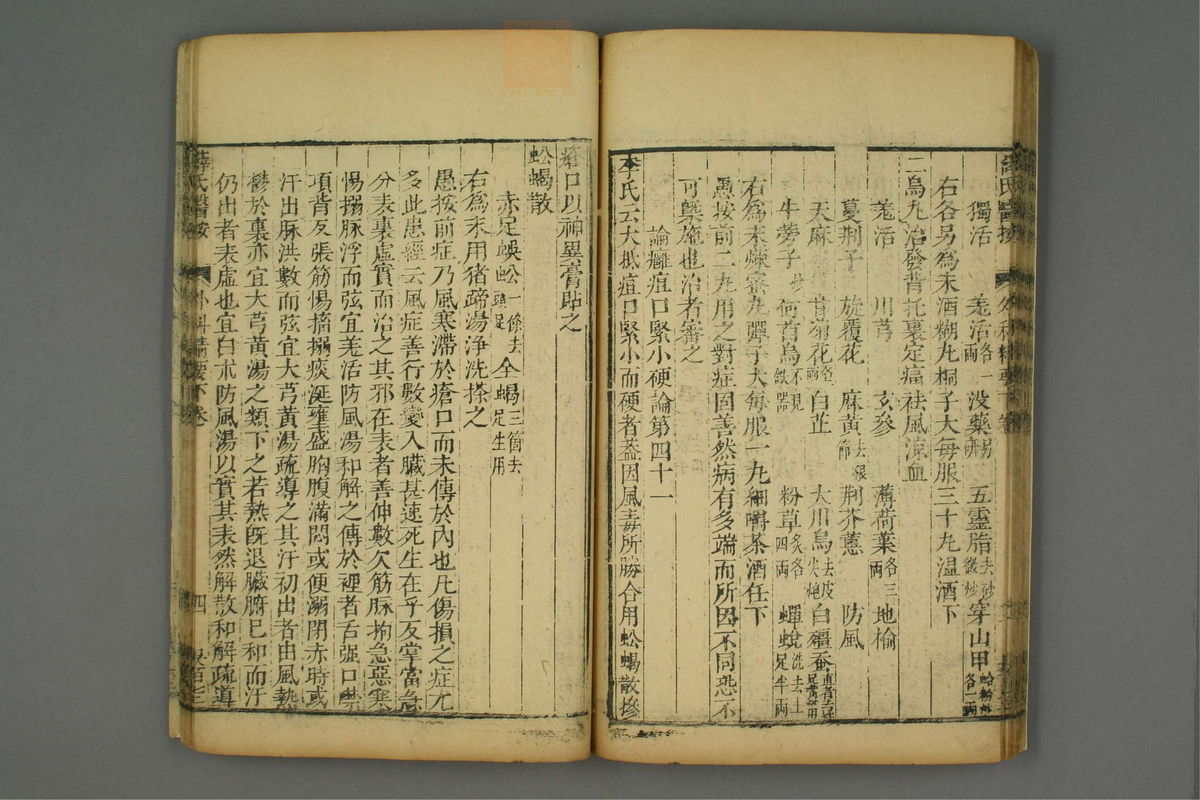 獨活 羌活各一兩 没藥 五靈脂去砂 穿山甲
右各另爲末酒糊丸桐子大每服三十丸温酒下
二烏丸治發背托裏定痛祛風涼血
羌活 川芎 玄參 薄荷葉各三兩 地榆
蔓荆子 旋覆花 麻黄去根節 荆芥蕙 防風
天麻 甘菊花各兩 白芷 大川烏去皮尖炮 白殭蚕
牛蒡子炒 何首烏不見鐵器 粉草炙各四兩 蟬蛻洗去土足半兩
右爲末煉蜜丸彈子大每服一丸細嚼茶酒任下
愚按前二丸用之對症固善然病有多端而所因不同恐不
可槩施也治者審之
論癰疽口緊小硬論第四十一
李氏云大抵疽口緊小而硬者蓋因風毒所勝合用蚣蝎散摻
瘡口以神異膏貼之
蚣蝎散
赤足蜈蚣一條去頭足 全蝎三箇去足生用
右爲末用猪蹄湯浄洗摻之
愚按前症乃風寒滯於瘡口而未傳於内也凡傷損之症尤
多此患經云風症善行數變入臟甚速死生在乎反掌當急
分表裏虚實而治之其邪在表者善伸數欠筋脉拘急惡寒
惕搦脉浮而弦宜羌活防風湯和解之傳於裡者舌强口噤
項背反張筋惕搐搦痰涎壅盛胸腹滿悶或便溺閉赤時或
汗出脉洪數而弦宜大芎黄湯疏導之其汗初出者由風熱
鬱於裏亦宜大芎黄湯之類下之若熱既退臟腑已和而汗
仍出者表虚也宜白术防風湯以實其表然解散和解疏導
薛氏醫按 外科精要下卷 四